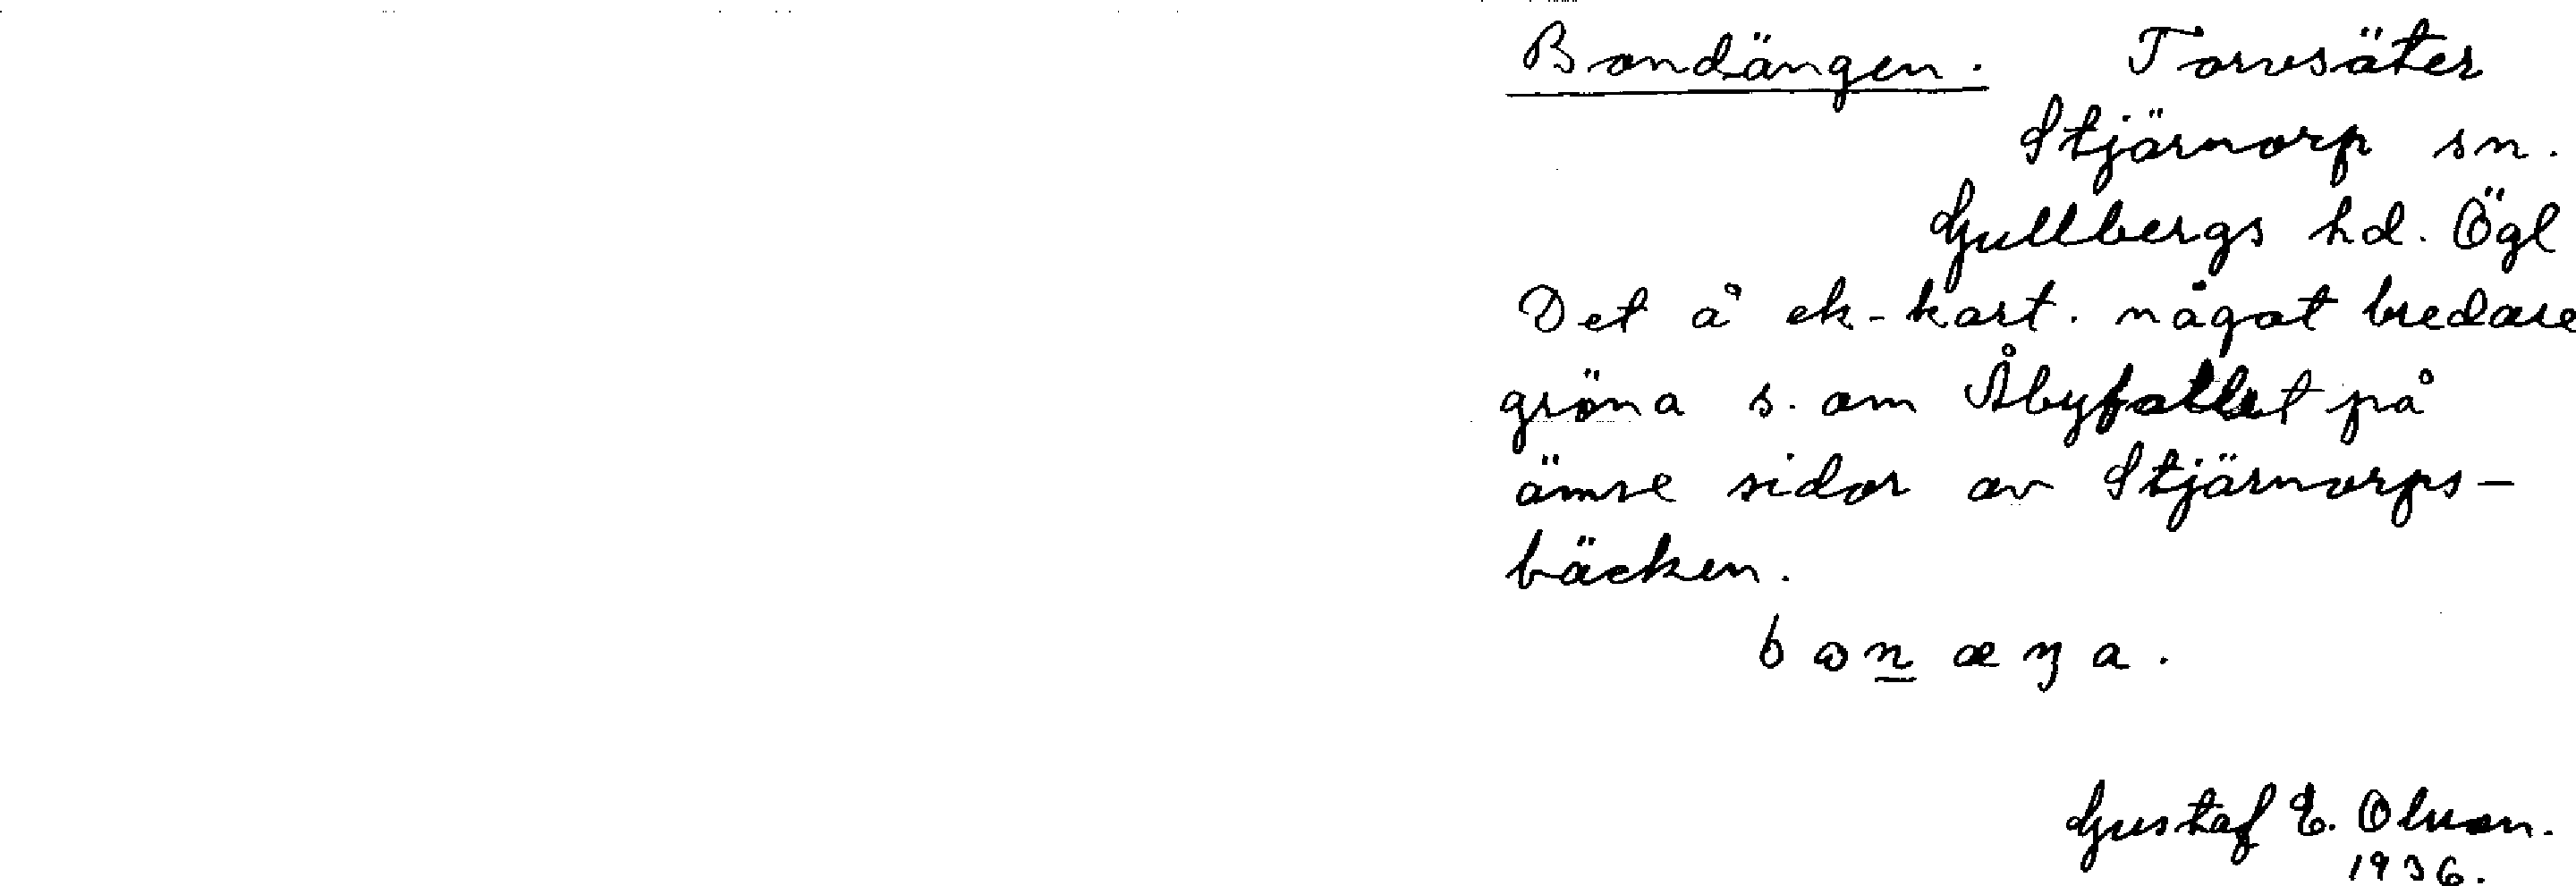 Bondängen. Torvsäter
Stjärnorp sn.
Gullbergs hd. Ögl
Det å ek-kart. något bredare
gröna s. om Åbyfallet på
ömse sidor av Stjärnorps-
bäcken.
bɷn̲æŋa.
Gustaf E. Olsson.
1936.